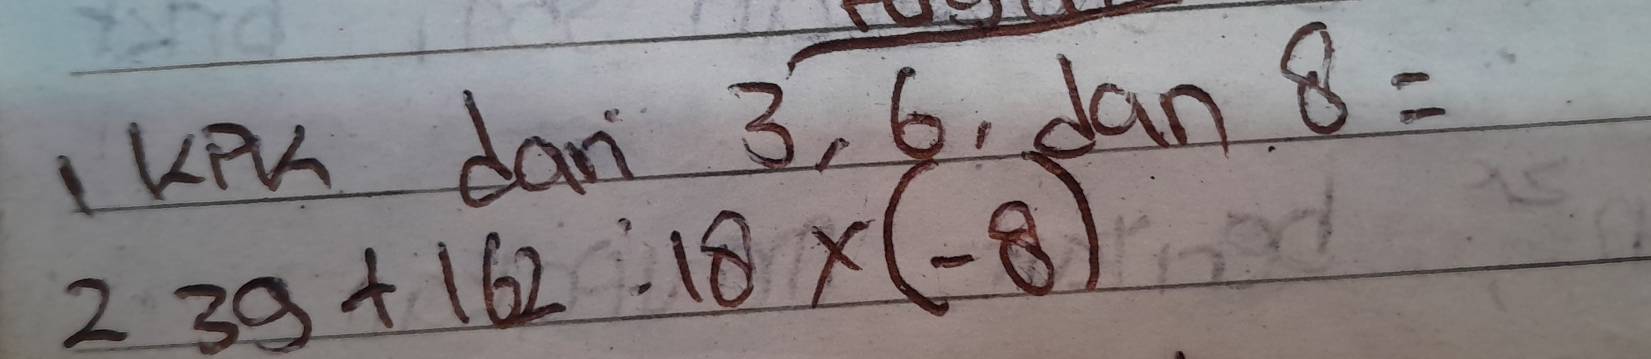 1 KPK dari 3, 6, dan 8 =
2 39 + 162 : 18 x (-8)